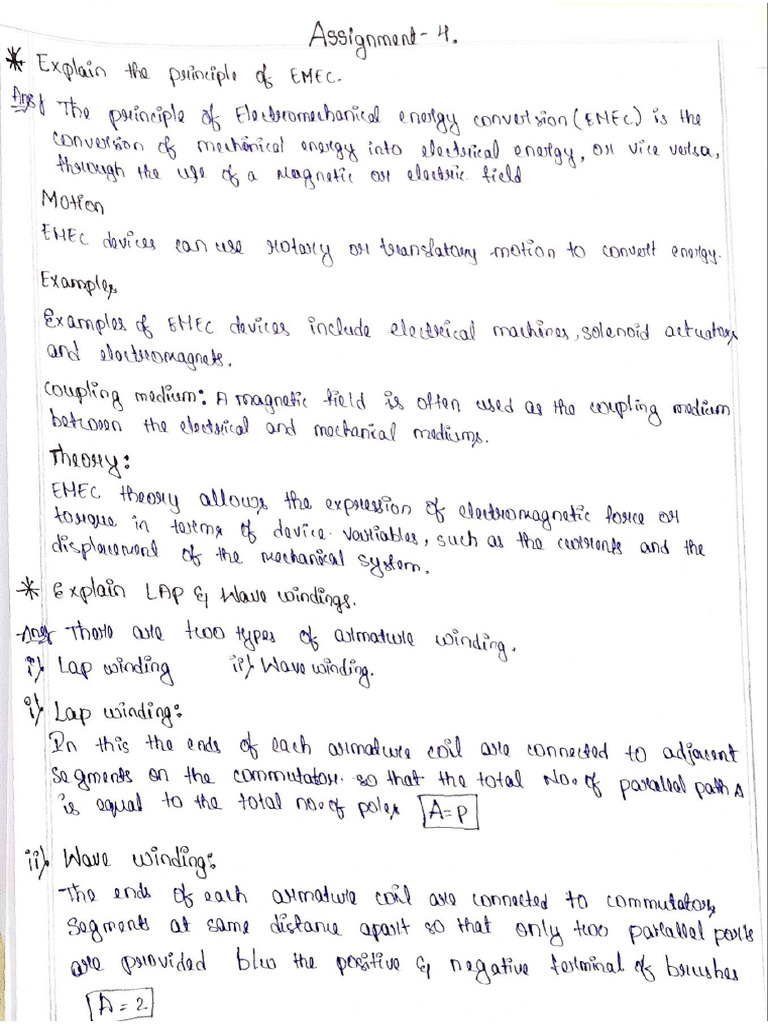 Assignment-4.
* Explain the principle of EMEC.
Ans) The principle of Electromechanical energy conversion (EMEC) is the
conversion of mechanical energy into electrical energy, or vice versa,
through the use of a magnetic or electric field
Motion
EMEC devices can use rotary or translatory motion to convert energy.
Examples
Examples of EMEC devices include electrical machines, solenoid actuators
and electromagnets.
Coupling medium: A magnetic field is often used as the coupling medium
between the electrical and mechanical mediums.
Theory:
EMEC theory allows the expression of electromagnetic force or
torque in terms of device variables, such as the currents and the
displacement of the mechanical system.
* Explain LAP & Wave windings.
Ans) There are two types of armature winding.
i) Lap winding ii) Wave winding.
i) Lap winding:
In this the ends of each armature coil are connected to adjacent
segments on the commutator. so that the total No. of parallel path A
is equal to the total no. of poles A=P
ii) Wave winding:
The ends of each armature coil are connected to commutators
segments at same distance apart so that only two parallel
are provided b/w the positive & negative terminal of brushes
A=2